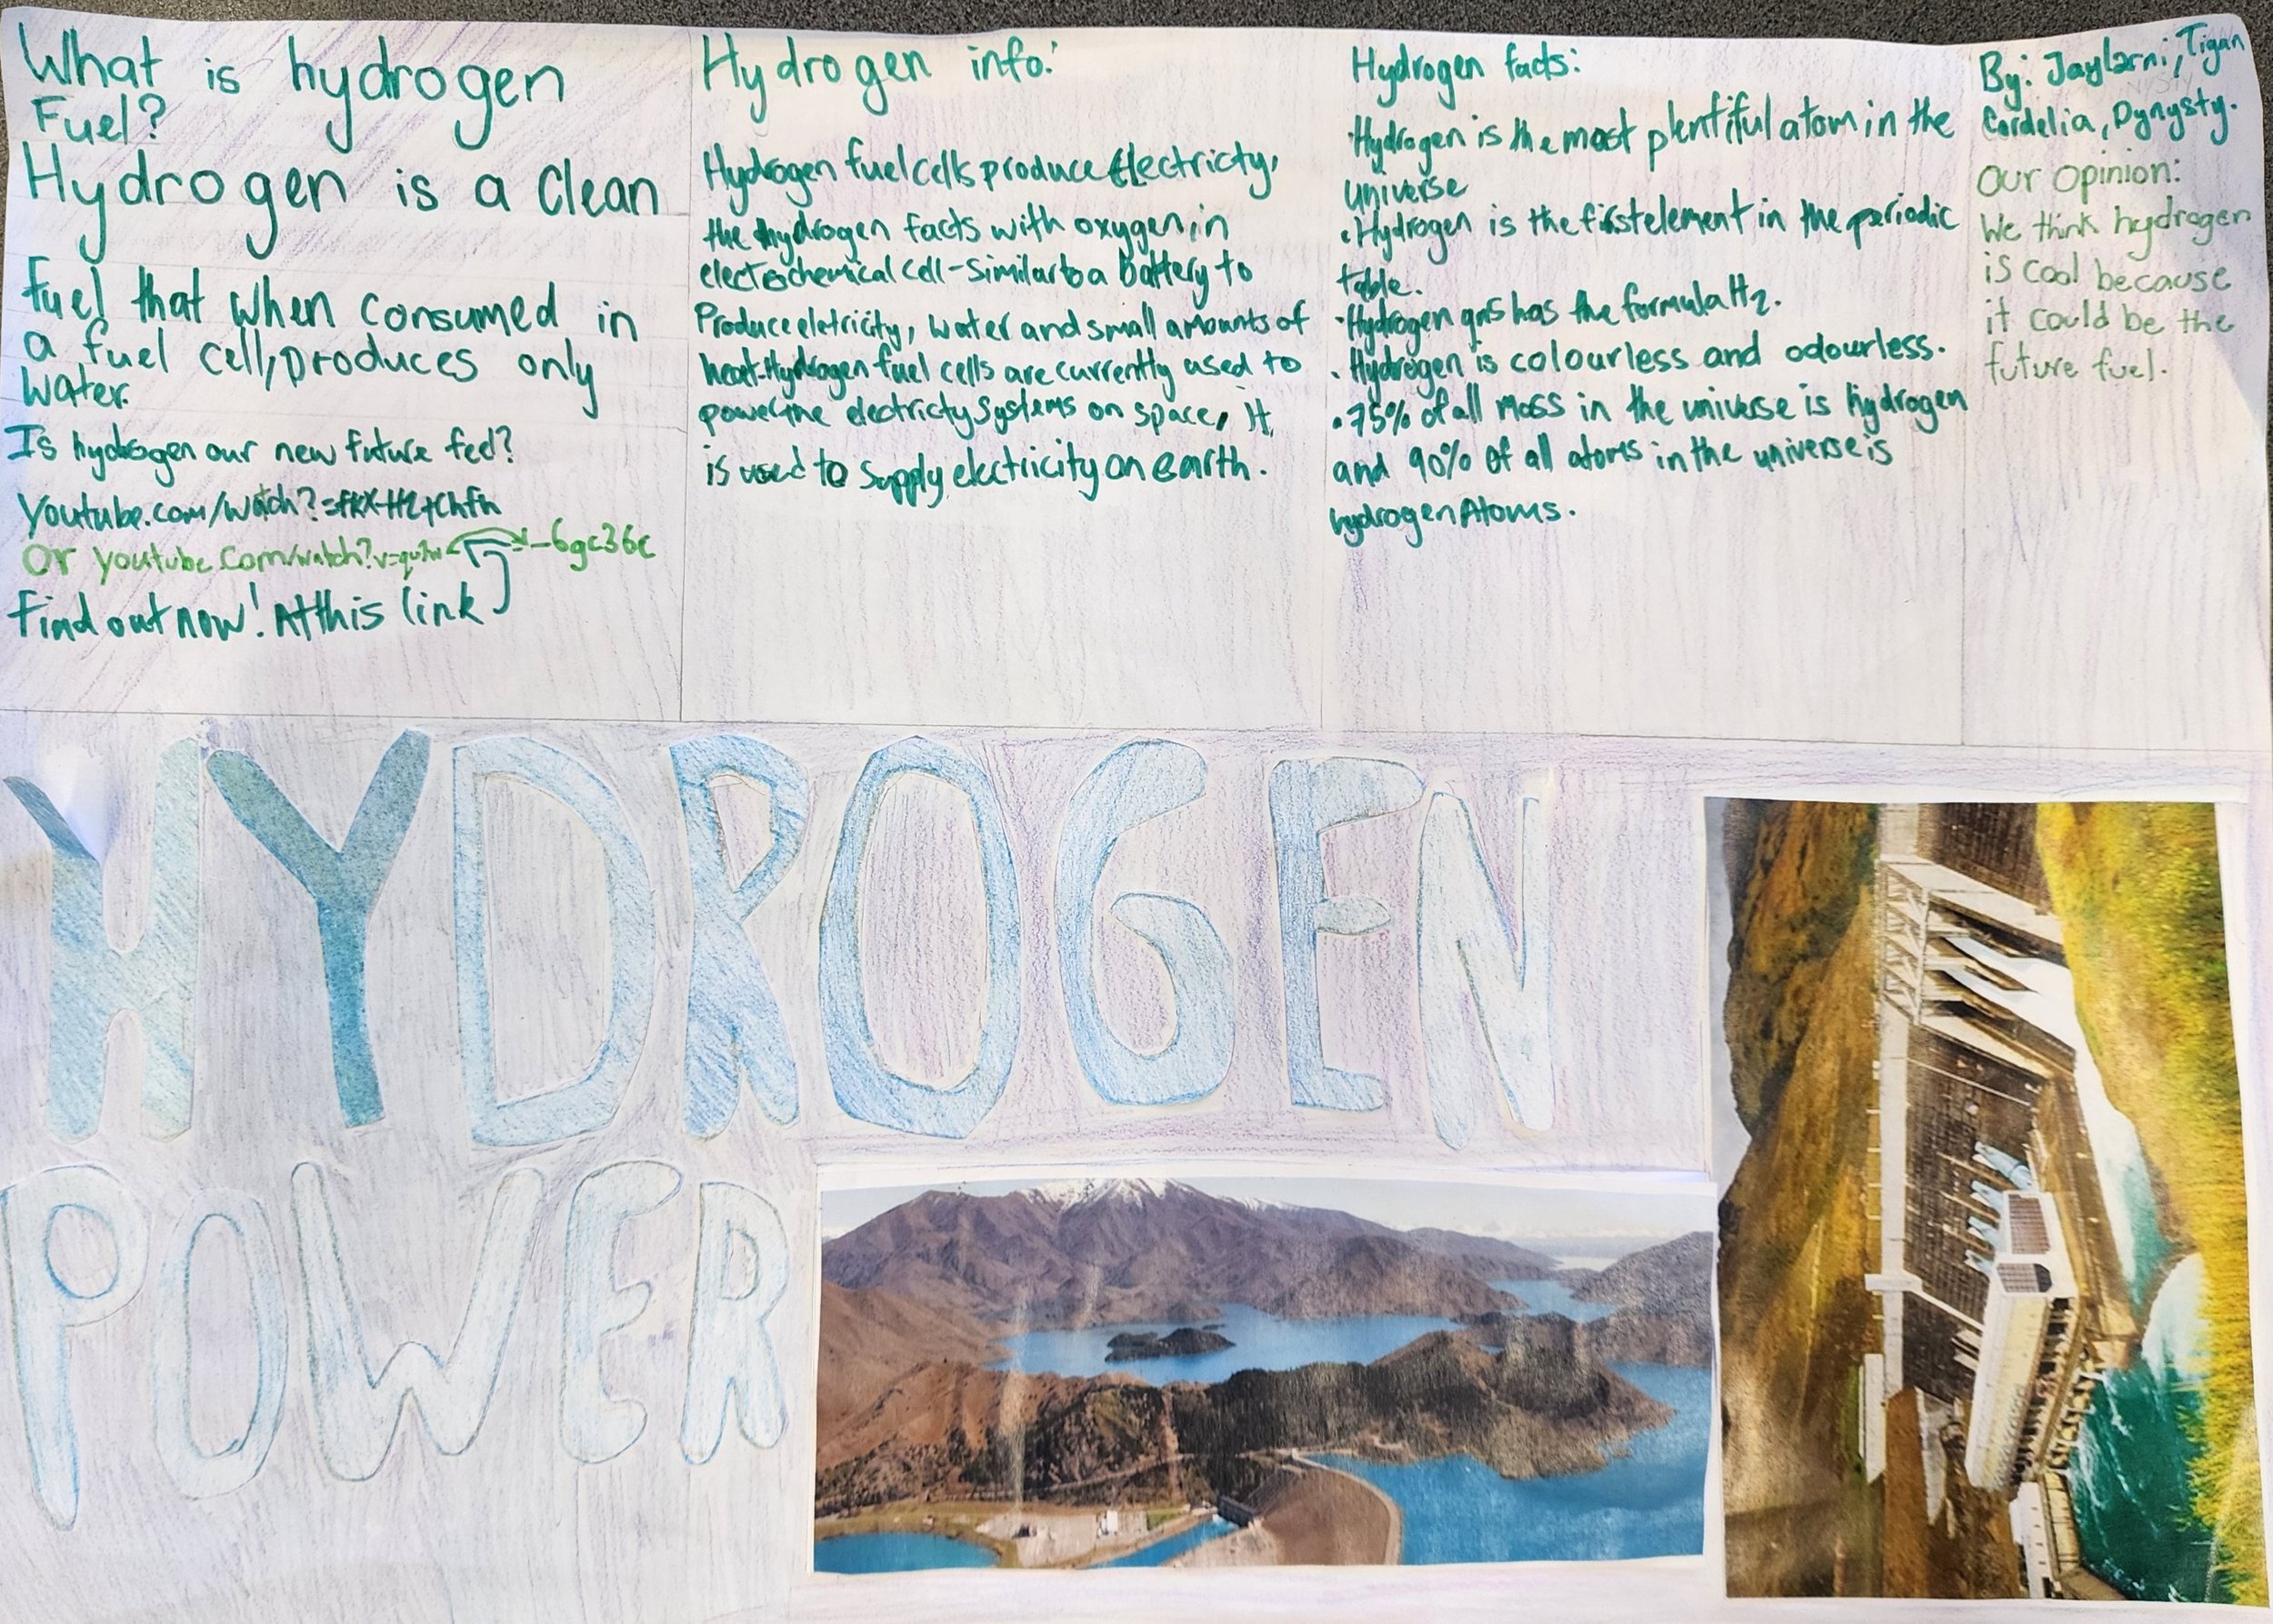 What is hydrogen
Fuel?
Hydrogen is a clean
Fuel that when consumed in
a fuel cell, produces only
water.
Is hydrogen our new future feel?
Youtube.com/watch?
Or youtube.com/watch? -6gc36c
Find out now! At this link
Hydrogen info:
Hydrogen fuel cells produce electricty,
the hydrogen facts with oxygen, in
electrochemical cell - Similar to a battery to
Produce eletricity, water and small amounts of
heat. Hydrogen fuel cells are currently used to
power the electricty systems on space, it
is used to supply electricity on earth.
Hydrogen facts:
• Hydrogen is the most plentiful atom in the
universe
• Hydrogen is the first element in the periodic
table.
• Hydrogen gas has the formula H2.
• Hydrogen is colourless and odourless.
• 75% of all mass in the universe is hydrogen
and 90% of all atoms in the universe is
hydrogen Atoms.
By: Jaylarni, Tigan
Cordelia, Dynysty.
Our opinion:
We think hydrogen
is cool because
it could be the
future fuel.
HYDROGEN
POWER